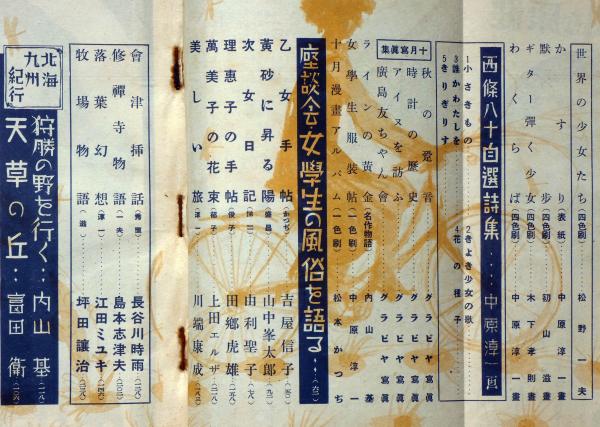 世界の少女たち（四色刷）……松野一夫
かすり（表紙）……中原淳一畫
ギター彈く少女（四色刷）……木下孝則畫
默歩（四色刷）……初山滋畫
わくらば（四色刷）……中原淳一畫
西條八十自選詩集……中原淳一畫
1小さきもの 2きよき少女の歌
3誰かわたしを 4花の種子
5きりぎりす
十月寫眞集
秋の跫音……グラビヤ寫眞
時計の歴史……グラビヤ寫眞
アイヌを訪ふ……グラビヤ寫眞
廣島友ちやん會……グラビヤ寫眞
ラインの黃金（名作物語）……内山基
女學生服裝帖（一色刷）……中原淳一
十月漫畫アルバム（一色刷）……松本かつぢ
座談会女學生の風俗を語る……（六〇）
乙女手帖（かつぢ）……吉屋信子
黃砂に昇る陽……山中峯太郎
次女日記……由利聖子
理惠子の手帖……田鄉虎雄
萬美子の花束……上田エルザ
美しい旅（淳一）……川端康成
會津挿話……長谷川時雨
修禪寺物語（一夫）……島本志津夫
落葉幻想（淳一）……江田ミユキ
牧場物語……坪田讓治
北海九州紀行
狩勝の野を行く……内山基
天草の丘……富田衞